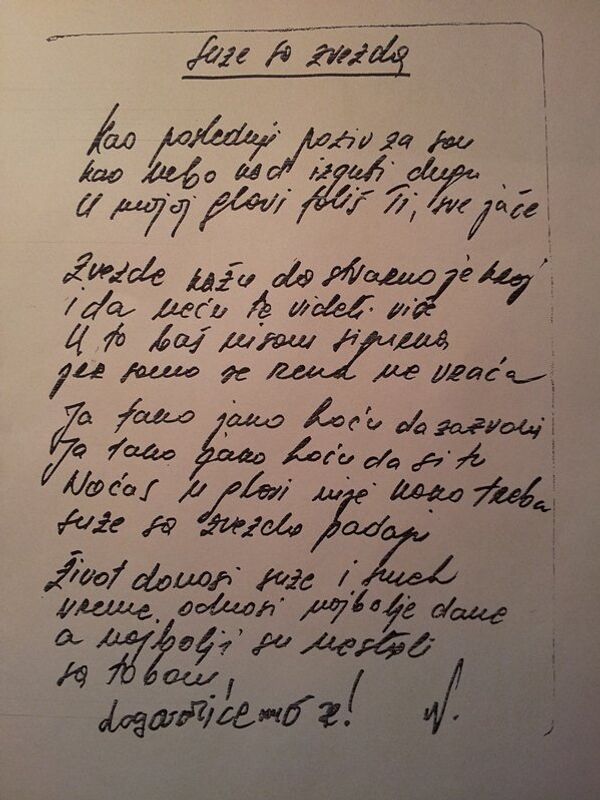 suze sa zvezda
Kao poslednji poziv za sou
kao nebo kad izgubi dugu
U mojoj glavi foliš Ti, sve jače
Zvezde kažu da stvarno je kraj
i da neću te videti više
U to baš nisam sigurna
jer samo se rena ne vraća
Ja tako jako hoću da zazvoni
Ja tako jako hoću da si tu
Noćas u glavi nije kako treba
suze sa zvezda padaju
Život donosi suze i smeh
vreme odnosi najbolje dane
a najbolji su nestali
sa tobom,
dogovorićemo se! N.